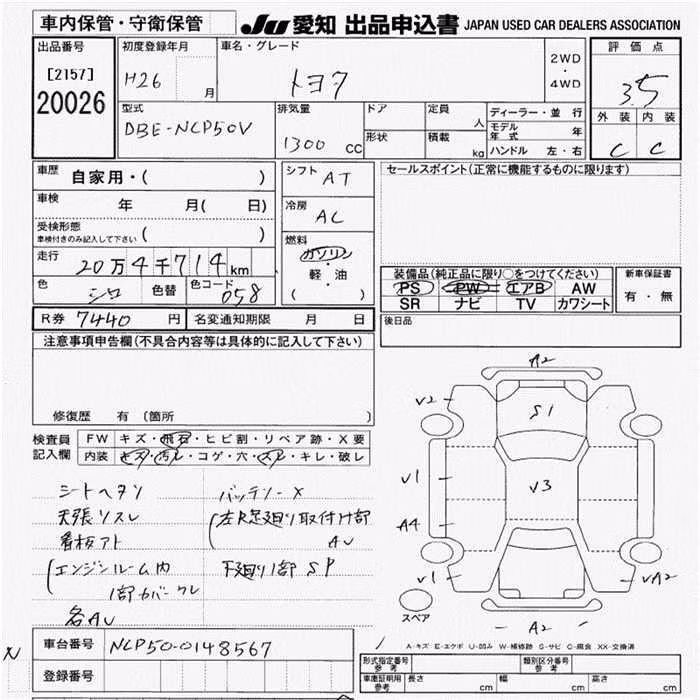 車内保管・守衛保管
JU 愛知 出品申込書 JAPAN USED CAR DEALERS ASSOCIATION
出品番号
[2157]
20026
初度登録年月
H26 月
車名・グレード
トヨタ
2WD
・
4WD
評価点
3.5
外装 内装
C C
型式
DBE-NCP50V
排気量
1300 CC
ドア
定員
人
形状
積載
kg
ディーラー・並行
モデル年式 年
ハンドル 左・右
車歴
自家用・( )
車検
年 月( 日)
受検形態
車検付きのみ記入して下さい ( )
走行
20万4千714km
色
シロ
色替
色コード
058
シフト
AT
冷房
AC
燃料
ガソリン
・
軽・油
( )
セールスポイント(正常に機能するものに限ります)
装備品(純正品に限り○をつけてください)
PS PW エアB AW
SR ナビ TV カワシート
新車保証書
有・無
後日品
R券 7440 円
名変通知期限 月 日
注意事項申告欄(不具合内容等は具体的に記入して下さい)
修復歴 有 〔箇所
検査員記入欄
FW キズ・飛石・ヒビ割・リペア跡・X要
内装 キズ・汚レ・コゲ・穴・スレ・キレ・破レ
シートヘタリ
天張リスレ
看板アト
エンジンルーム内
1部カバークレ
各AU
バッテリーX
左R足廻り取付け部
AU
下廻り1部SP
A2
V2
S1
V1
V3
A4
V1
VA2
A2
スペア
A-キズ E-エクボ U-凹み W-補修跡 S-サビ C-腐食 XX-交換済
車台番号
NCP50-0148567
登録番号
形式指定番号
参考
類別区分番号
参考
車庫証明用
参考
長さ cm
幅 cm
高さ cm